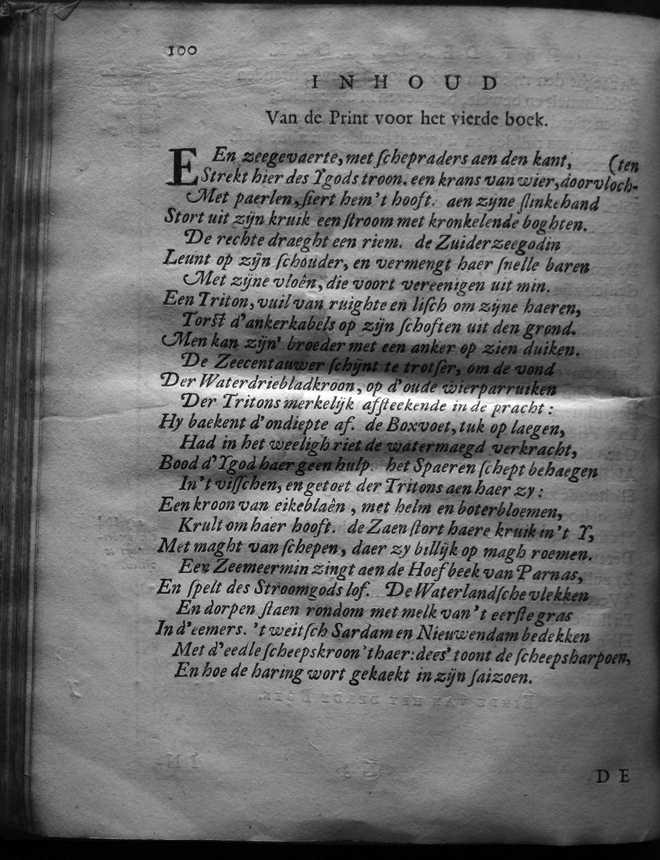 100
INHOUD
Van de Print voor het vierde boek.
EEn zeegevaerte, met schepraders aen den kant, (ten
Strekt hier des Ygods troon. een krans van wier, doorvloch-
Met paerlen, siert hem 't hooft. aen zyne slinkehand
Stort uit zijn kruik een stroom met kronkelende boghten.
De rechte draeght een riem. de Zuiderzeegodin
Leunt op zijn schouder, en vermengt haer snelle baren
Met zijne vloên, die voort vereenigen uit min.
Een Triton, vuil van ruighte en lisch om zijne haeren,
Torst d'ankerkabels op zijn schoften uit den grond.
Men kan zijn' broeder met een anker op zien duiken.
De Zeecentauwer schijnt te trotser, om de vond
Der Waterdriebladkroon, op d'oude wierparruiken
Der Tritons merkelijk afsteekende in de pracht:
Hy baekent d'ondiepte af. de Boxvoet, tuk op laegen,
Had in het weeligh riet de watermaegd verkracht,
Bood d'Ygod haer geen hulp. het Spaeren schept behaegen
In 't visschen, en getoet der Tritons aen haer zy:
Een kroon van eikeblaên, met helm en boterbloemen,
Krult om haer hooft. de Zaen stort haere kruik in 't Y,
Met maght van schepen, daer zy billijk op magh roemen.
Een Zeemeermin zingt aen de Hoefbeek van Parnas,
En spelt des Stroomgods lof. De Waterlandsche vlekken
En dorpen staen rondom met melk van 't eerste gras
In d'eemers. 't weitsch Sardam en Nieuwendam bedekken
Met d'eedle scheepskroon 't haer: dees' toont de scheepsharpoen,
En hoe de haring wort gekaekt in zijn saizoen.
DE